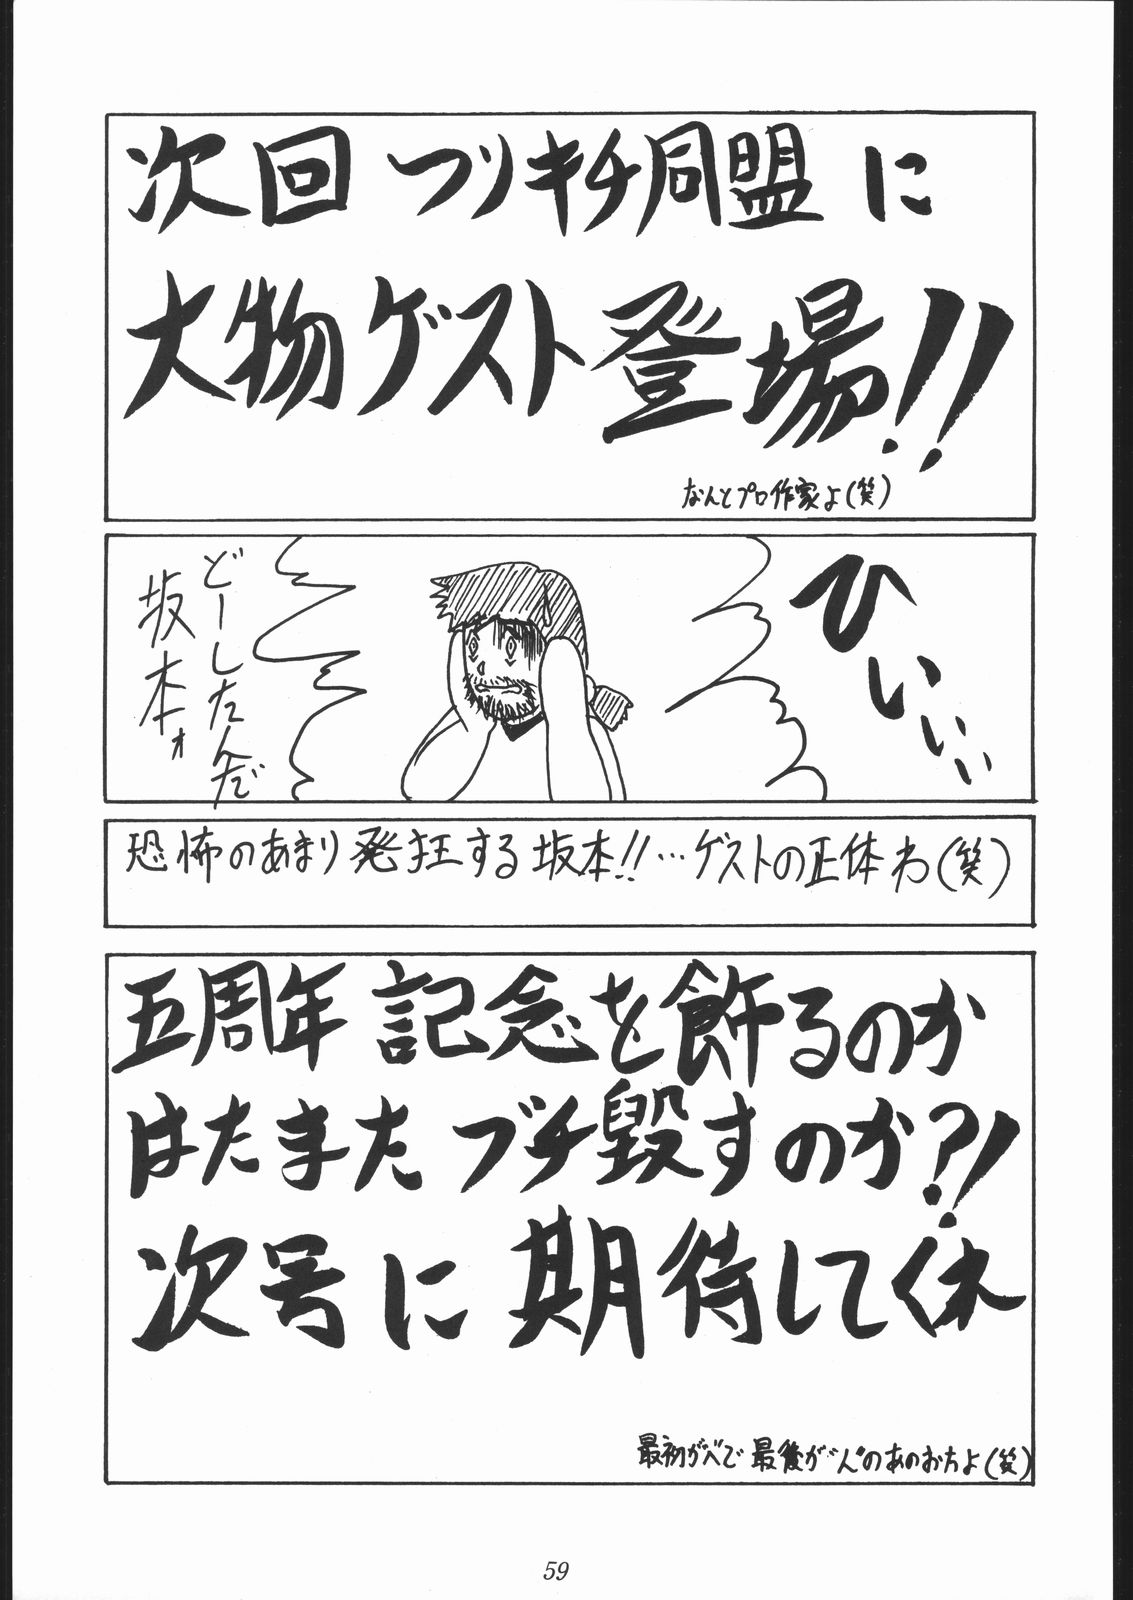 次回 つりキチ同盟 に
大物ゲスト登場!!
なんとプロ作家よ(笑)
ひいぃぃ
どーしたんだ
坂本ォ
恐怖のあまり発狂する坂本!!…ゲストの正体わ(笑)
五周年 記念を飾るのか
はたまた ブチ毀すのか?!
次号に 期待して休
最初がべで 最後が“ん”のあのおかたよ(笑)
59